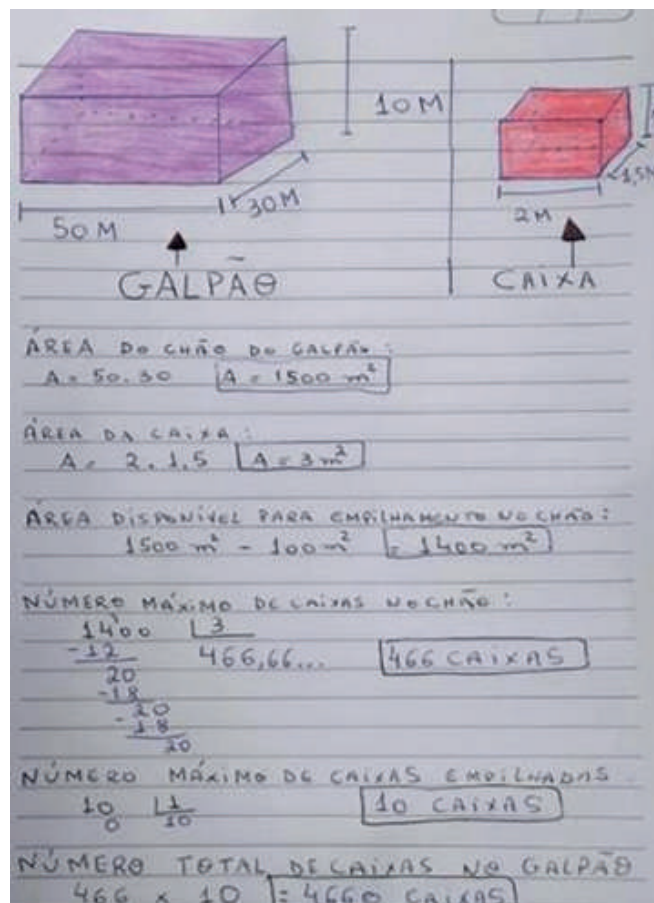 10 M
50 M
30 M
2 M
1,5M
GALPÃO
CAIXA
ÁREA DO CHÃO DO GALPÃO:
A = 50.30 A = 1500 m²
ÁREA DA CAIXA:
A = 2.1,5 A = 3 m²
ÁREA DISPONÍVEL PARA EMPILHAMENTO NO CHÃO:
1500 m² - 100 m² = 1400 m²
NÚMERO MÁXIMO DE CAIXAS NO CHÃO:
1400 3
-12 466,66... 466 CAIXAS
20
-18
20
-18
20
NÚMERO MÁXIMO DE CAIXAS EMPILHADAS
10 1
0 10 10 CAIXAS
NÚMERO TOTAL DE CAIXAS NO GALPÃO
466 x 10 = 4660 CAIXAS